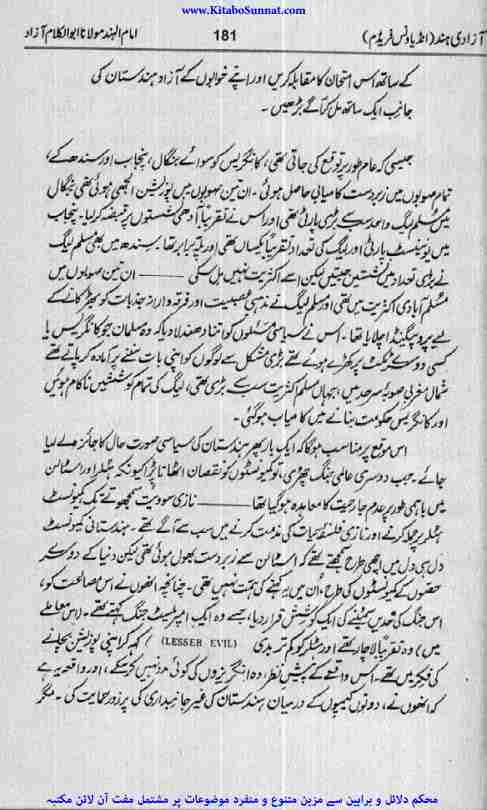 www.KitaboSunnat.com
آزادی ہند (انڈیا ونس فریڈم)
181
امام الہند مولانا ابوالکلام آزاد
کے ساتھ اس امتحان کا مقابلہ کریں اور اپنے خوابوں کے آزاد ہندستان کی
جانب ایک ساتھ مل کر آگے بڑھیں۔
جیسی کہ عام طور پر توقع کی جاتی تھی، کانگریس کو سوائے بنگال، پنجاب اور سندھ کے،
تمام صوبوں میں زبردست کامیابی حاصل ہوئی۔ ان تین صوبوں میں پوزیشن الجھی ہوئی تھی بنگال
میں مسلم لیگ واحد سب سے بڑی پارٹی تھی اور اس نے تقریباً آدھی نشستوں پر قبضہ کر لیا۔ پنجاب
میں یونینسٹ پارٹی اور لیگ کی تعداد تقریباً یکساں تھی اور پلہ برابر تھا۔ سندھ میں بھی مسلم لیگ
نے بڑی تعداد میں نشستیں جیتیں لیکن اسے اکثریت نہیں مل سکی ——— ان تین صوبوں میں
مسلم آبادی اکثریت میں تھی اور مسلم لیگ نے مذہبی عصبیت اور فرقہ وارانہ جذبات کو بھڑکانے کے
لیے پروپیگنڈا چلایا تھا۔ اس نے سیاسی مسئلوں کو اتنا دھندلا دیا کہ وہ مسلمان جو کانگریس یا
کسی دوسرے ٹکٹ پر کھڑے ہوئے تھے بڑی مشکل سے لوگوں کو اپنی بات سننے پر آمادہ کر پاتے تھے
شمال مغربی صوبۂ سرحد میں، جہاں مسلم اکثریت سب سے بڑی تھی، لیگ کی تمام کوششیں ناکام ہوئیں
اور کانگریس حکومت بنانے میں کامیاب ہو گئی۔
اس موقع پر مناسب ہوگا کہ ایک بار پھر ہندستان کی سیاسی صورت حال کا جائزہ لے لیا
جائے۔ جب دوسری عالمی جنگ چھڑی، تو کمیونسٹوں کو نقصان اٹھانا پڑا کیونکہ ہٹلر اور اسٹالن
میں باہمی طور پر عدم جارحیت کا معاہدہ ہو گیا تھا ——— نازی سوویت سمجھوتے تک کمیونسٹ
ہٹلر پر حملہ کرنے اور نازی فلسفۂ حیات کی مذمت کرنے میں سب سے آگے تھے۔ ہندستانی کمیونسٹ
دل ہی دل میں اچھی طرح سمجھتے تھے کہ اسٹالن سے زبردست بھول ہوئی تھی لیکن دنیا کے دوسرے
حصوں کے کمیونسٹوں کی طرح، ان میں یہ کہنے کی ہمت نہیں تھی۔ چنانچہ انھوں نے اس مصالحت کو،
اس جنگ کی حدیں سمیٹنے کی ایک کوشش قرار دیا، جسے وہ ایک امپرلسٹ جنگ کہتے تھے۔ (اس معاملے
میں) وہ تقریباً لاچار تھے اور ہٹلر کو کم تر بدی (LESSER EVIL) کہہ کر اپنی پوزیشن بچانے
کی فکر میں تھے۔ اس واقعے کے پیش نظر، وہ انگریزوں کی کوئی مدد نہیں کر سکے، اور واقعہ یہ ہے
کہ انھوں نے، دونوں کیمپوں کے درمیان ہندستان کی غیر جانبداری کی پرزور حمایت کی۔ مگر
محکم دلائل و براہین سے مزین متنوع و منفرد موضوعات پر مشتمل مفت آن لائن مکتبہ